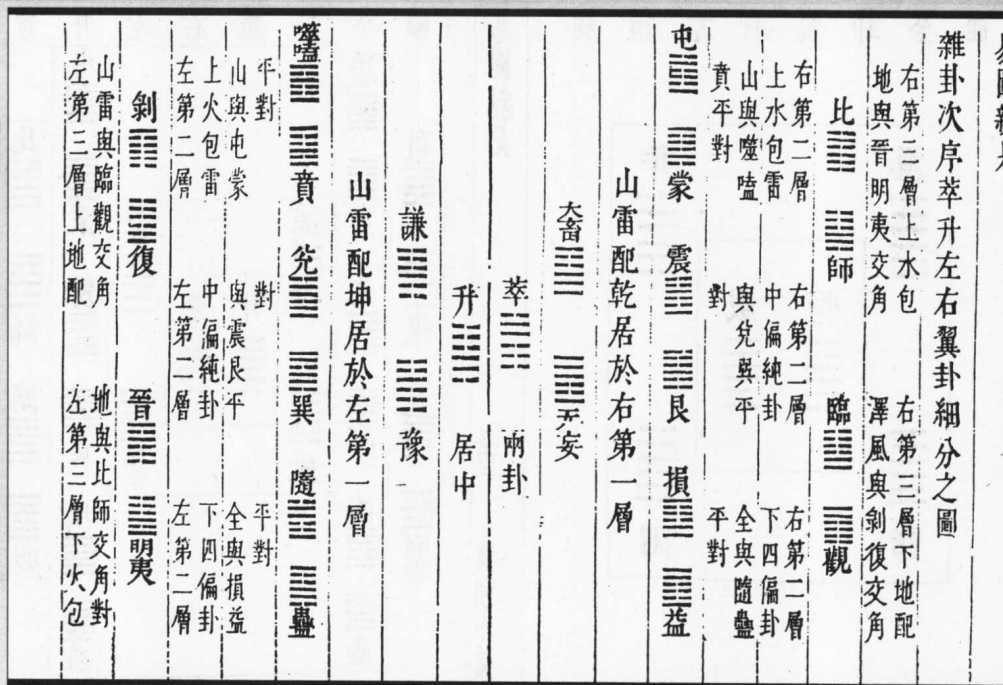 雜卦次序萃升左右翼卦細分之圖
右第三層上水包 右第三層下地配
地與晉明夷交角 澤風與剝復交角
比䷇ ䷆師 臨䷒ ䷓觀
右第二層 右第二層 右第二層
上水包雷 中偏純卦 下四偏卦
山與噬嗑 與兌巽平 全與隨蠱
賁平對 對 平對
屯䷂ ䷃蒙 震䷲ ䷳艮 損䷨ ䷩益
山雷配乾居於右第一層
大畜䷙ ䷘无妄
萃䷬ 兩卦
升䷭ 居中
謙䷎ ䷏豫
山雷配坤居於左第一層
噬嗑䷔ ䷕賁 兌䷹ ䷸巽 隨䷐ ䷑蠱
平對 對 平對
山與屯蒙 與震艮平 全與損益
上火包雷 中偏純卦 下四偏卦
左第二層 左第二層 左第二層
剝䷖ ䷗復 晉䷢ ䷣明夷
山雷與臨觀交角 地與比師交角對
左第三層上地配 左第三層下火包